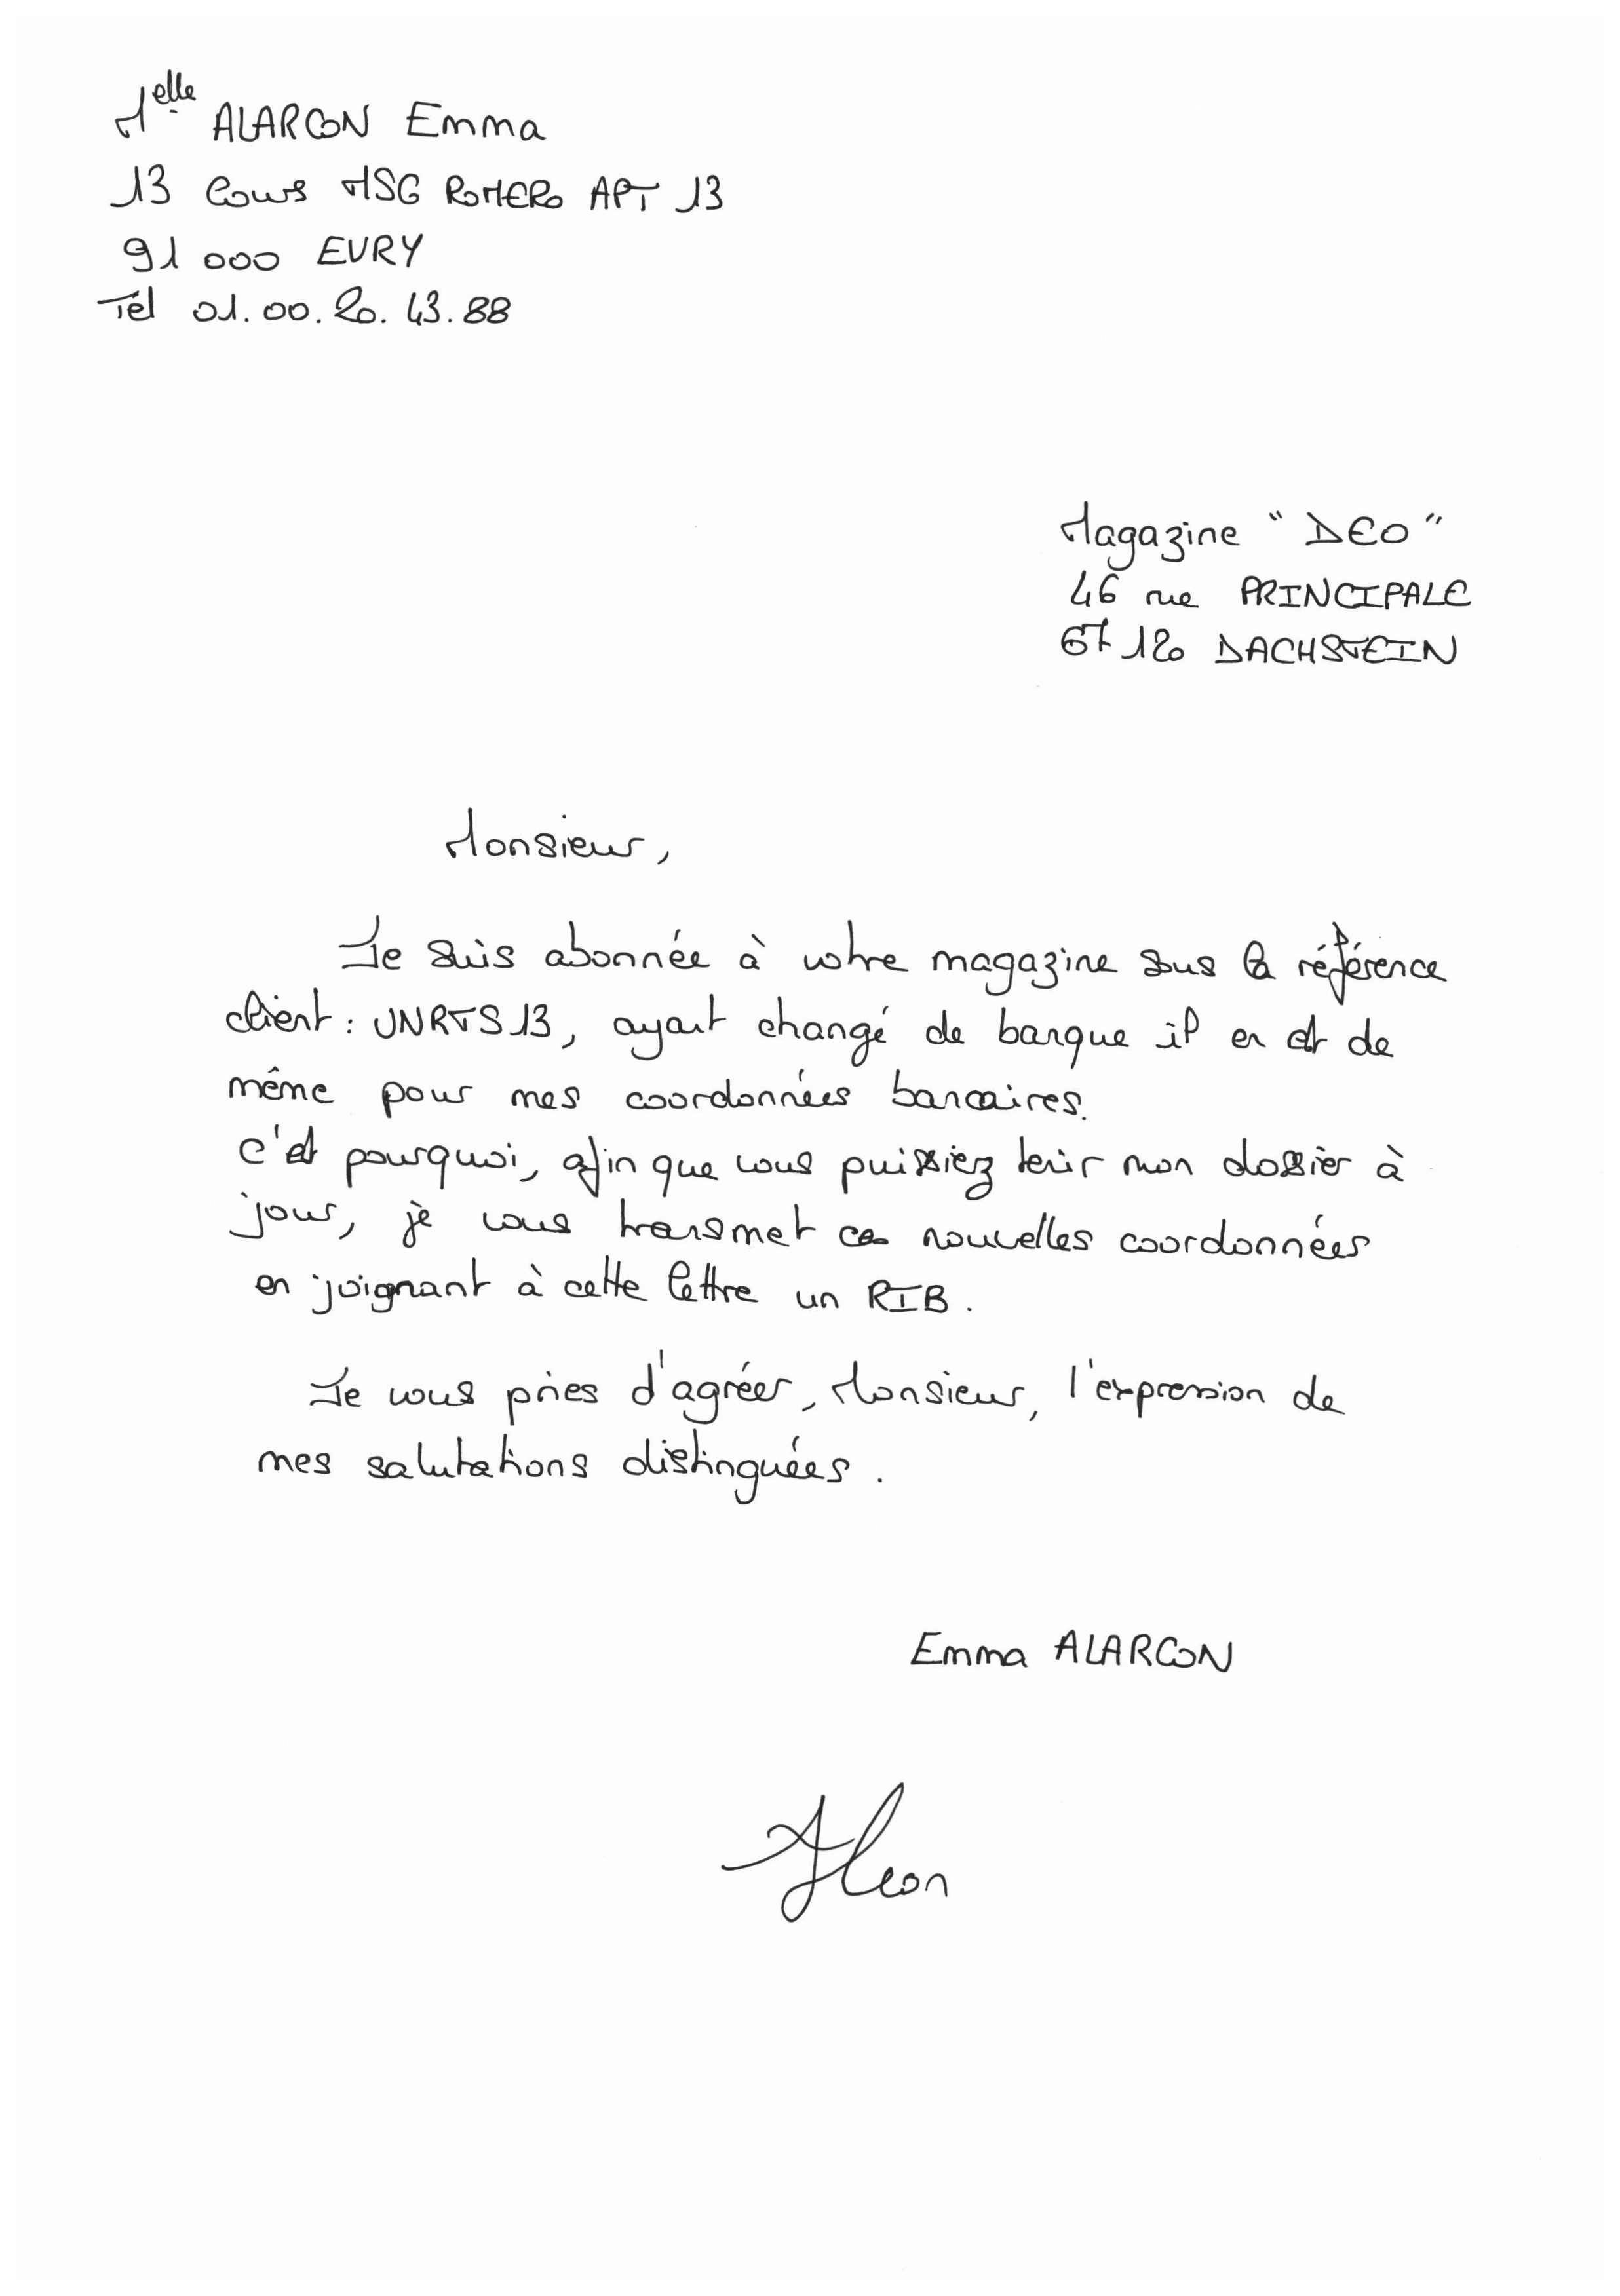 Melle ALARCON Emma
13 Cours MSG ROMERO APT 13
91 000 EVRY
Tél 01.00.20.43.88
Magazine "DEO"
46 rue PRINCIPALE
67 120 DACHSTEIN
Monsieur,
Je suis abonnée à votre magazine sous la référence
client : UNRTS13, ayant changé de banque il en est de
même pour mes coordonnées bancaires.
C'est pourquoi, afin que vous puissiez tenir mon dossier à
jour, je vous transmet ces nouvelles coordonnées
en joignant à cette lettre un RIB.
Je vous pries d'agréer, Monsieur, l'expression de
mes salutations distinguées.
Emma ALARCON